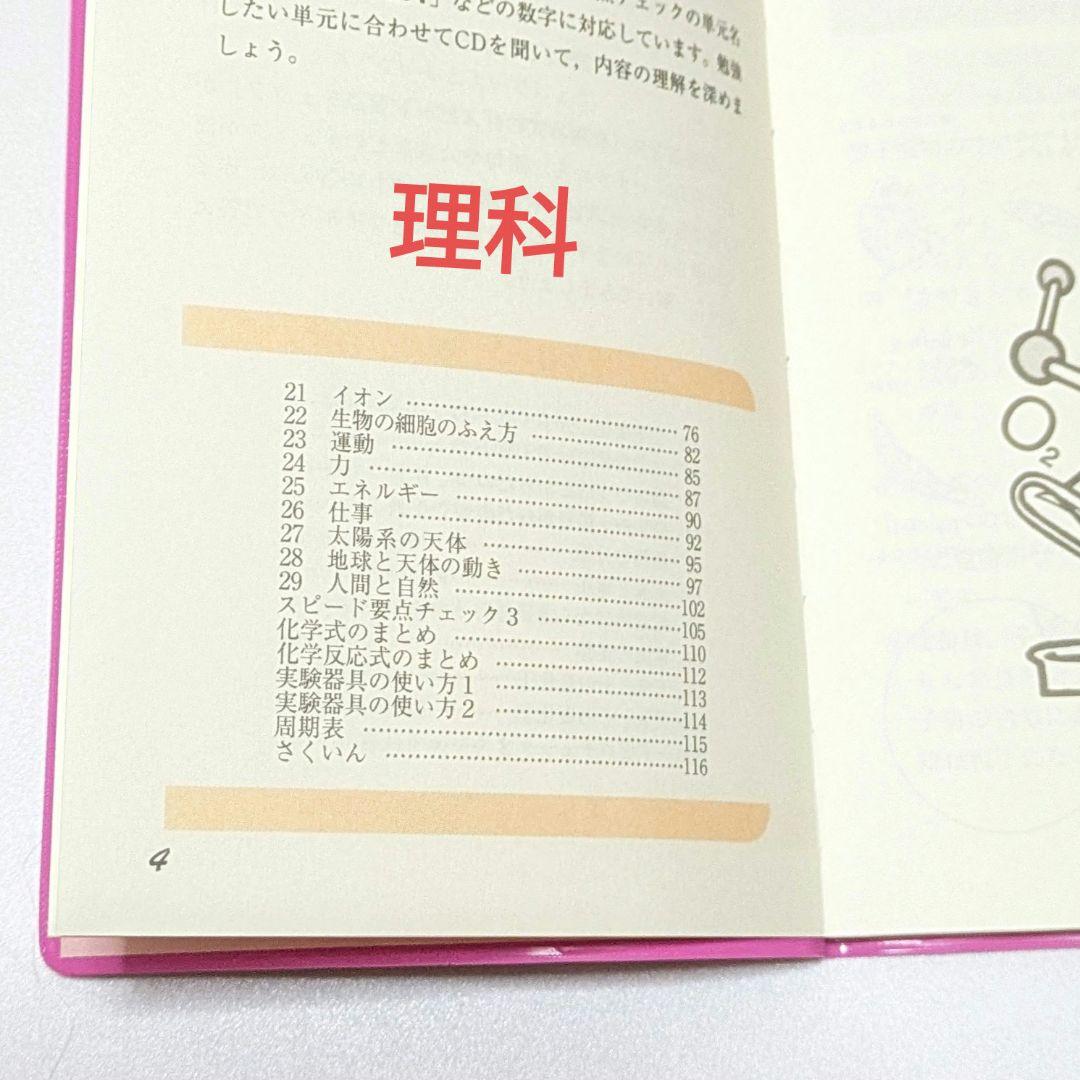 」などの数字に対応しています。勉強
したい単元に合わせてCDを聞いて，内容の理解を深めま
しょう。
理科
21 イオン 76
22 生物の細胞のふえ方 82
23 運動 85
24 力 87
25 エネルギー 90
26 仕事 92
27 太陽系の天体 95
28 地球と天体の動き 97
29 人間と自然 102
スピード要点チェック3 105
化学式のまとめ 110
化学反応式のまとめ 112
実験器具の使い方1 113
実験器具の使い方2 114
周期表 115
さくいん 116
4
O2